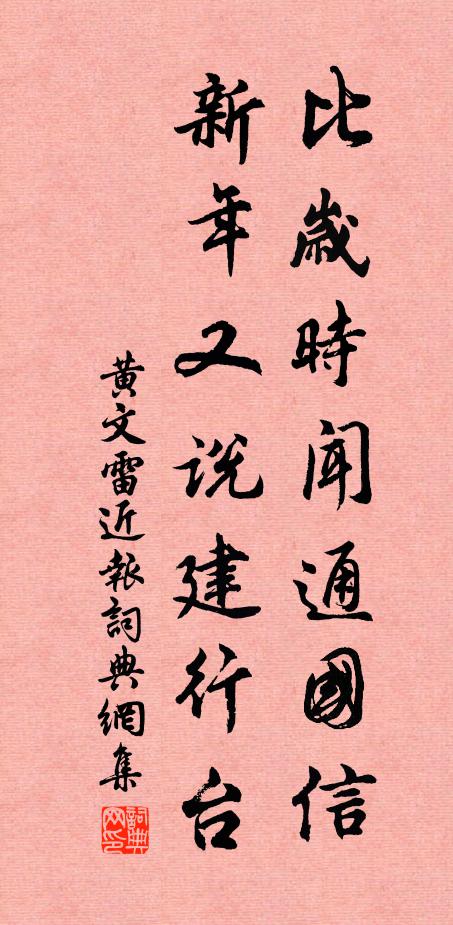 比歲時聞通國信
新年又説建行台
黃文雷近報詞典網集
詞典网印